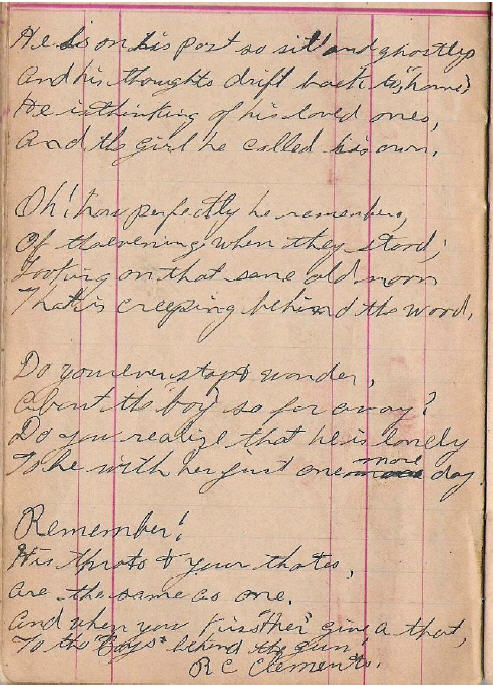 He is on his post so still and ghostly
And his thoughts drift back to, "home"
He is thinking of his loved ones,
And the girl he called his own.
Oh! how perfectly he remembers,
Of the evening when they stood;
Looking on that same old moon
That is creeping behind the wood.
Do you ever stop & wonder,
About the boy so far away?
Do you realize that he is lonely
To be with her just one more day
Remember!
His & your thotes,
are the same as one.
And when you "other" give a that,
To the "Boys" behind the gun!
R C Clements.